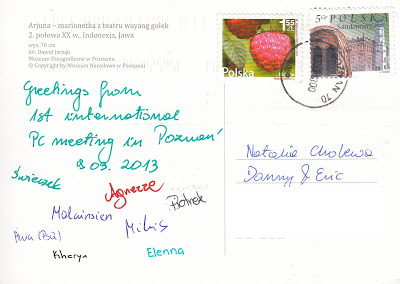 Arjuna – marionetka z teatru wayang golek
2. połowa XX w., Indonezja, Jawa
wys. 70 cm
fot. Dawid Jarząb
Muzeum Etnograficzne w Poznaniu
© Copyright by Muzeum Narodowe w Poznaniu
1.55
ZŁ
Polska
5 gr
POLSKA
Sandomierz
Greetings from
1st international
PC meeting in Poznań
03.2013
Świerzek
Agnezze
Piotrek
Malainsien
Miłuś
Ania (BQ)
Kharyn
Elenna
Natalie Cholewa
Danny & Eric